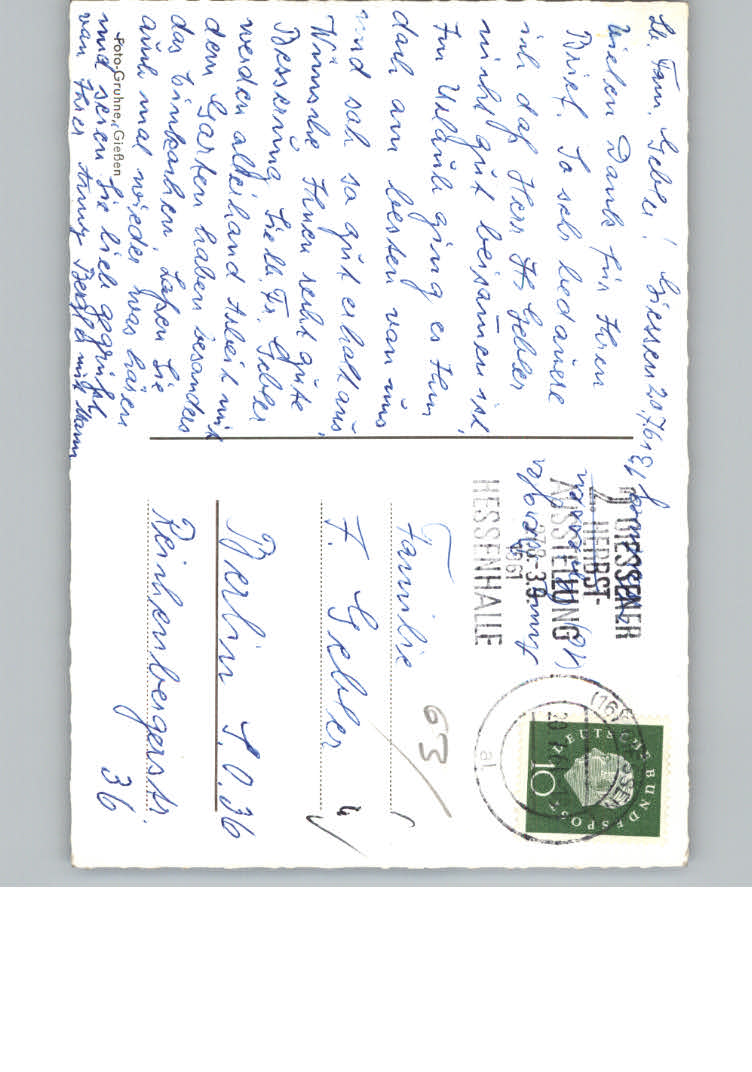 Lb. Fam. Gebler! Giessen 20.7.61
Vielen Dank für Ihren
Brief. So sehr bedauere
ich daß Herr Gebler
nicht gut beisamen ist
Im Urlaub ging es Ihm
doch am besten von uns
und sah so gut erholt aus,
Wünsche Ihnen recht gute
Besserung Sie lb. Fr. Gebler
werden allerhand Arbeit mit
dem Garten haben besonders
das Einkochen. Laßen Sie
auch mal wieder was hören
und seien Sie lieb gegrüßt
von Ihrer Anny mit Mann
Foto-Gruhne, Gießen
GIESSENER
HERBST-
AUSSTELLUNG
1961
HESSENHALLE
(16) GIESSEN
DEUTSCHE BUNDESPOST
10
Familie
F. Gebler
Berlin S.O. 36
Reichenbergerstr.
36
63